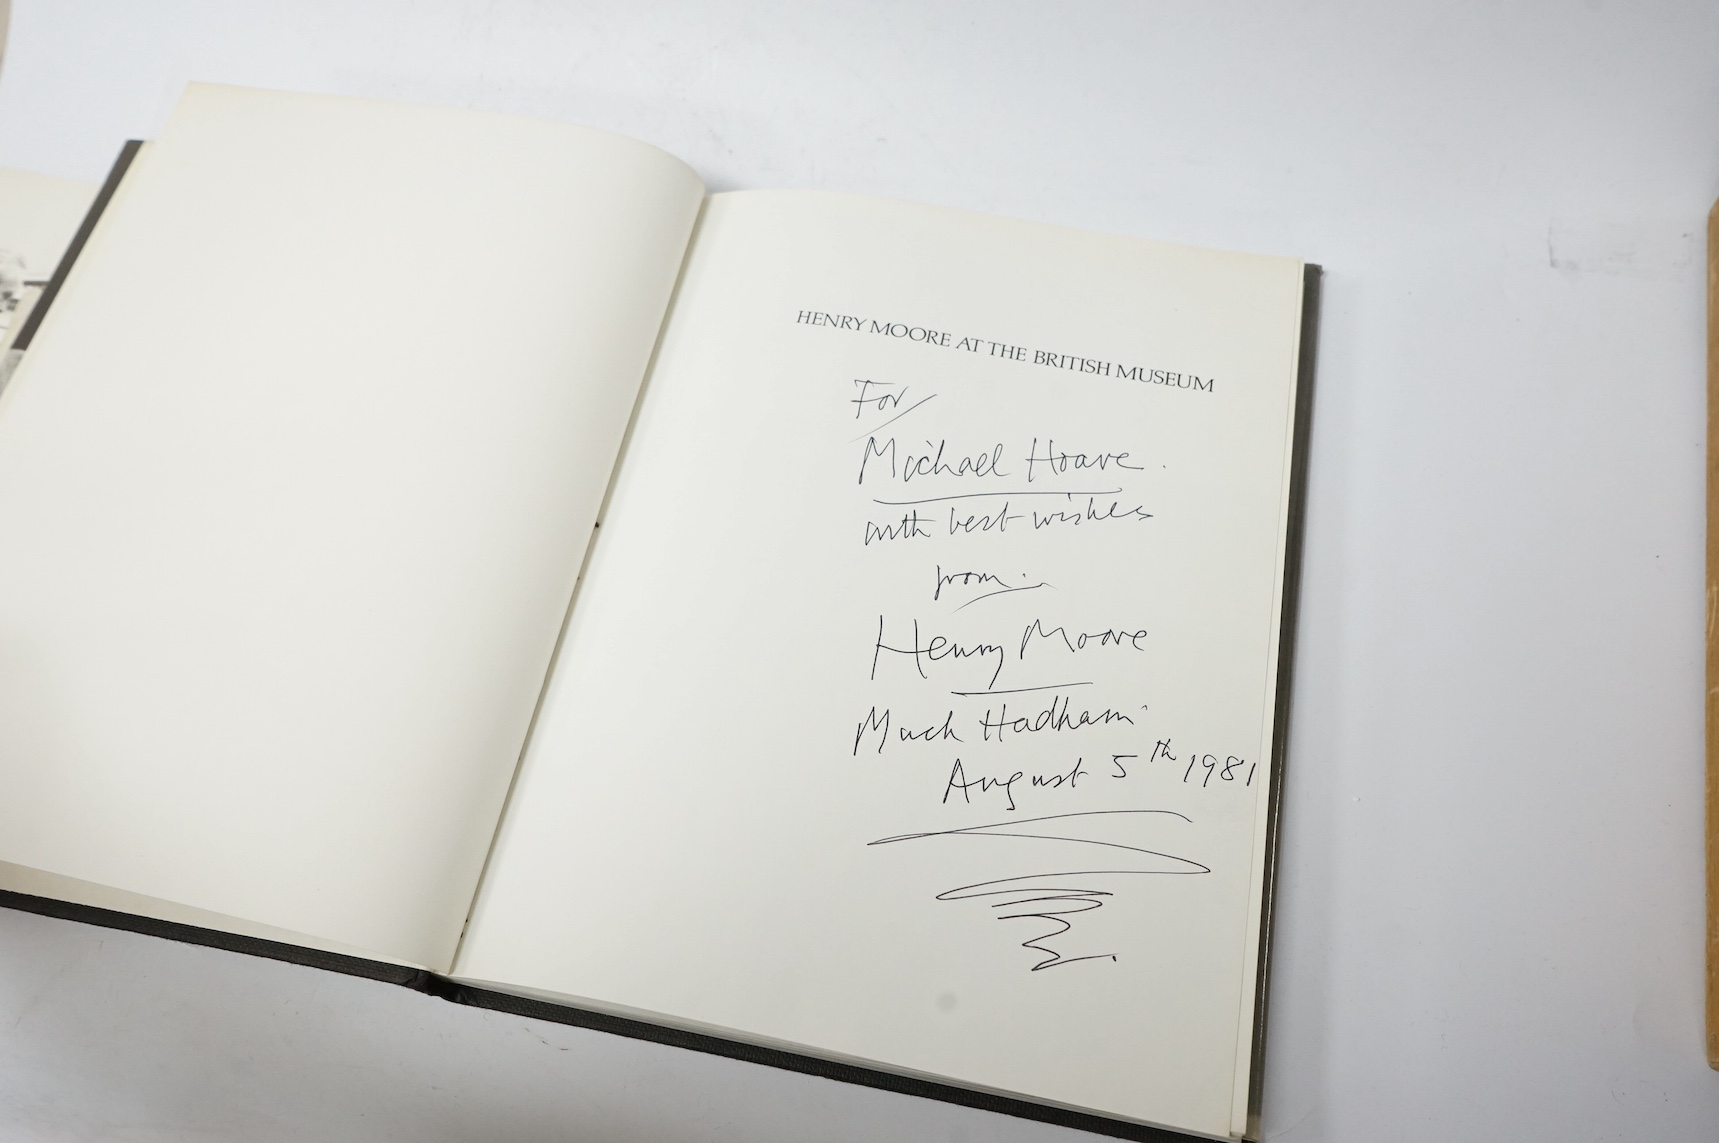 HENRY MOORE AT THE BRITISH MUSEUM
For
Michael Hoare.
with best wishes
from
Henry Moore
Much Hadham
August 5th 1981